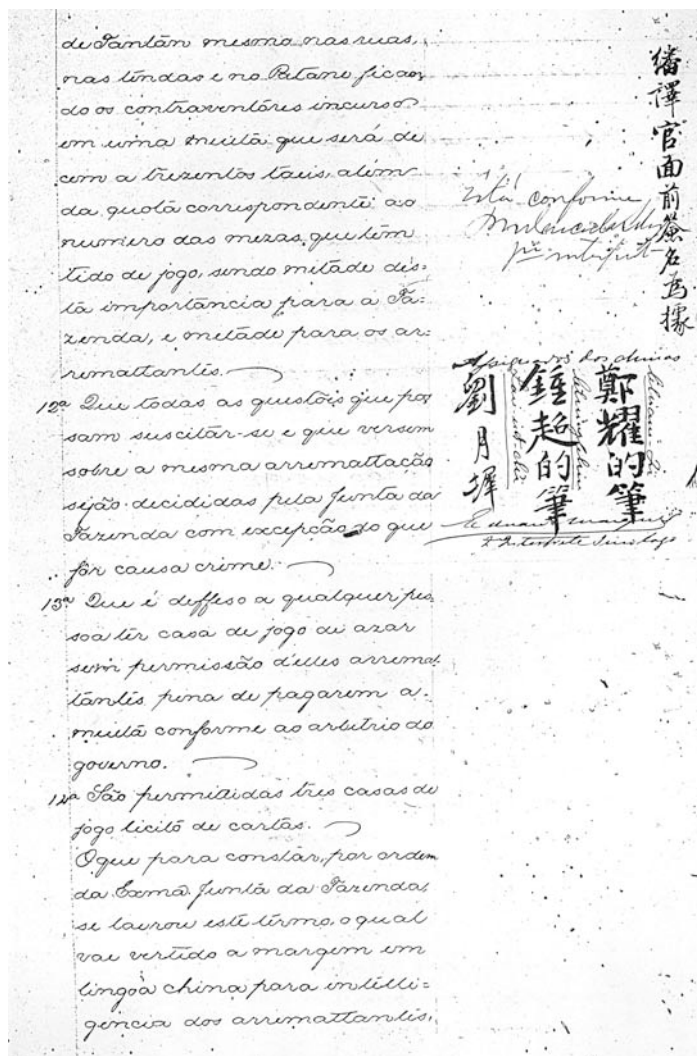 de Fantàn mesmo nas ruas,
nas tendas e no Patane fican
do os contraventores incursos
em uma multa que será de
cem a trezentos taeis, além
da quota correspondente ao
numero das mezas que têm
tido de jogo, sendo metade des=
ta importancia para a Fa=
zenda, e metade para os ar=
rematantes.
12ª Que todas as questões que pos
sam suscitar-se e que versem
sobre a mesma arrematação
sejão decididas pela Junta da
Fazenda com excepção do que
fôr causa crime.
13ª Que é deffeso a qualquer pes
soa ter casa de jogo de azar
sem permissão d'elles arrema
tantes, pena de pagarem a
multa conforme ao arbitrio do
governo.
14ª São permitidas tres casas de
jogo licito de cartas.
O que para constar, por ordem
da Exmã Junta da Fazenda,
se lavrou este têrmo, o qual
vae vertido a margem em
lingoa china para intelli=
gencia dos arrematantes,
繙譯官面前簽名為據
Está conforme
Assignados dos chinas
鄭耀的筆
鍾超的筆
劉月墀
Eduardo Marques